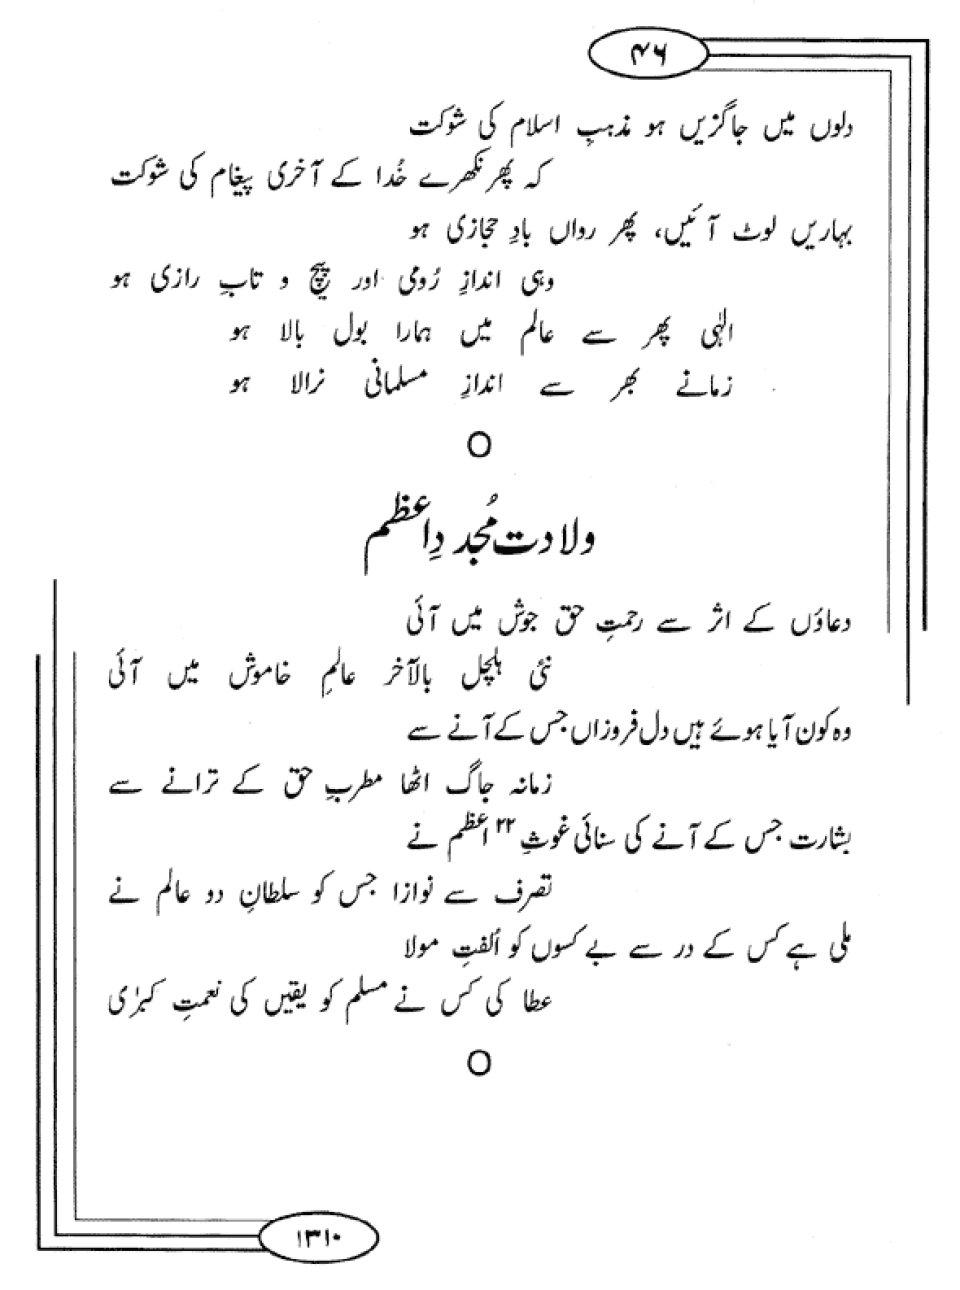 ۴۶
دلوں میں جاگزیں ہو مذہبِ اسلام کی شوکت
کہ پھر نکھرے خُدا کے آخری پیغام کی شوکت
بہاریں لوٹ آئیں، پھر رواں بادِ حجازی ہو
وہی اندازِ رُومی اور پیچ و تابِ رازی ہو
الٰہی پھر سے عالم میں ہمارا بول بالا ہو
زمانے بھر سے اندازِ مسلمانی نرالا ہو
O
ولادت مُجددِ اعظم
دعاؤں کے اثر سے رحمتِ حق جوش میں آئی
نئی ہلچل بالآخر عالمِ خاموش میں آئی
وہ کون آیا ہوئے ہیں دل فروزاں جس کے آنے سے
زمانہ جاگ اٹھا مطربِ حق کے ترانے سے
بشارت جس کے آنے کی سنائی غوثِ ۲۲ اعظم نے
تصرف سے نوازا جس کو سلطانِ دو عالم نے
ملی ہے کس کے در سے بے کسوں کو اُلفتِ مولا
عطا کی کس نے مسلم کو یقیں کی نعمتِ کبرٰی
O
۱۳۱۰